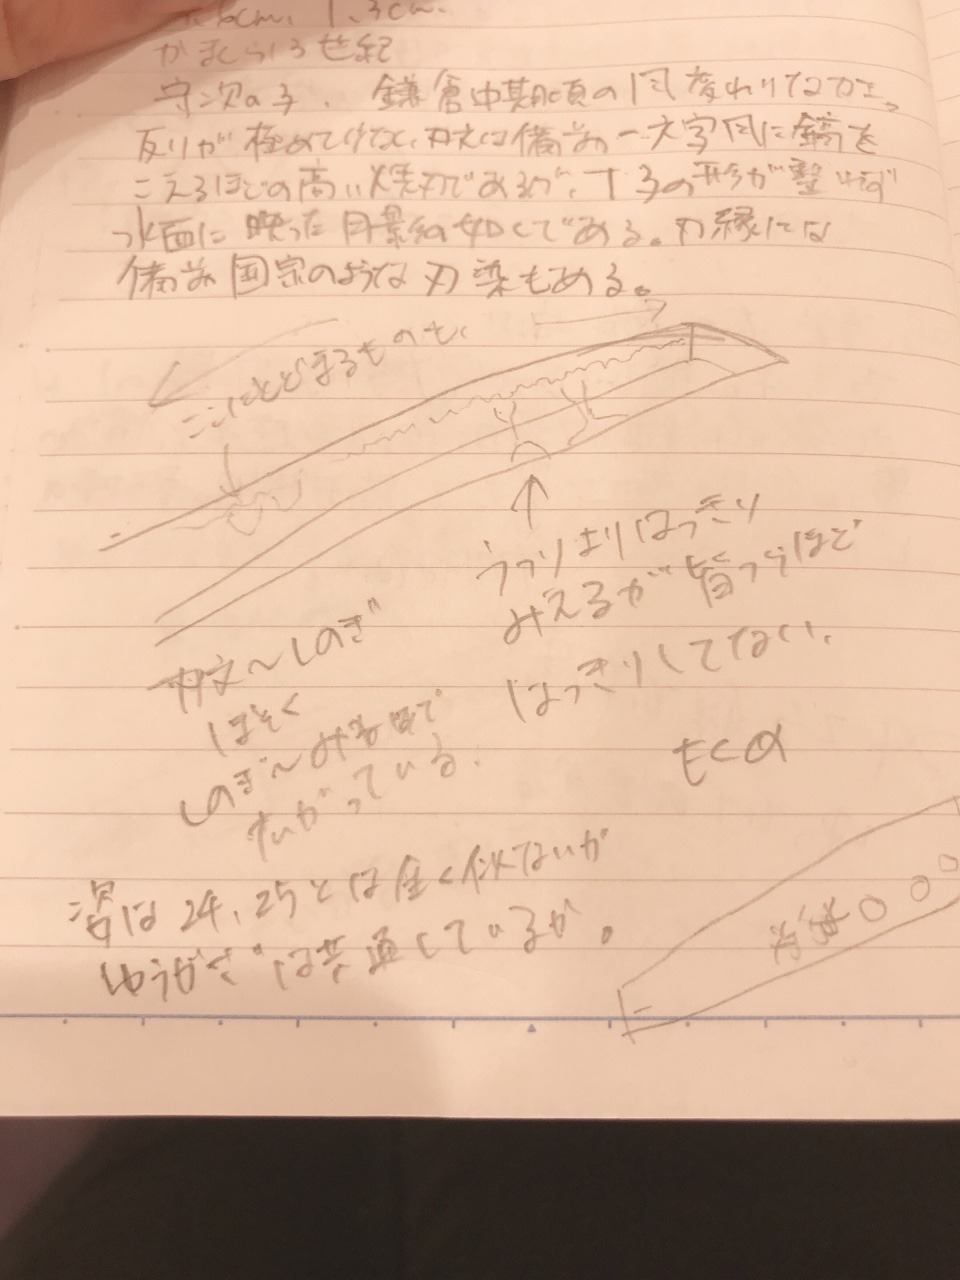 6cm、1.3cm.
かまくら13世紀
守次の子、鎌倉中期頃の
反りが極めて 刃文は備前一文字風に鎬を
こえるほどの高い焼刃であるが、丁子の形が整
水面に映った月影の如くである。刃縁には
備前国宗のような刃染もある。
ここにとどまるものも、
うつりよりはっきり
みえるが皆つらほど
はっきりしてない.
刃文〜しのぎ
ほそく
しのぎ〜みね
ている.
姿は24、25とは全く似ないが
ゆうがさは共通しているか。